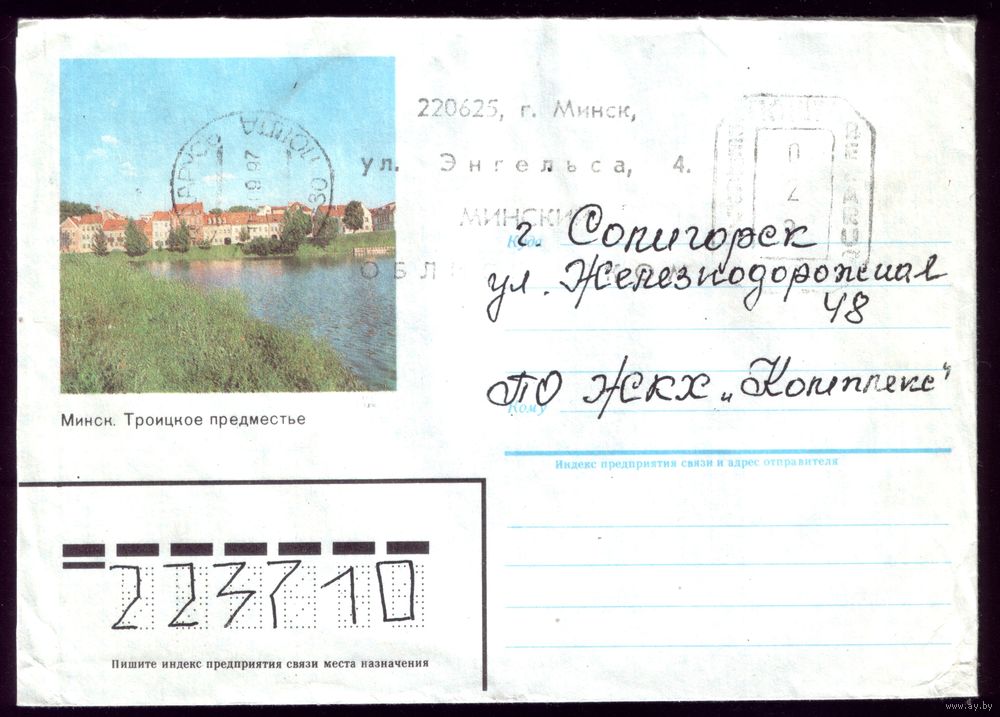 220625, г. Минск,
ул. Энгельса, 4.
МИНСКИ
ОБЛ
ПОШТА
9 97
30
0
2
Куда
г Солигорск
ул. Железнодорожная
48
Кому
ПО ЖКХ „Комплекс"
Минск. Троицкое предместье
Индекс предприятия связи и адрес отправителя
223710
Пишите индекс предприятия связи места назначения
www.ay.by